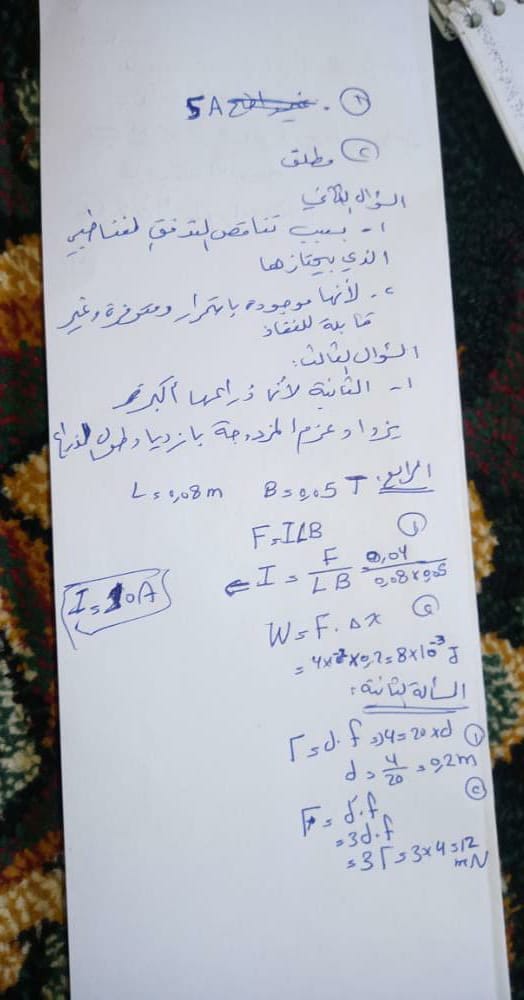 ١. 5A
٢ مطلق
السؤال الثاني
١- بسبب تناقص التدفق المغناطيسي
الذي يجتازها
٢- لأنها موجودة باستمرار ومتوفرة وغير
قابلة للنفاذ
السؤال الثالث:
١- الثانية لأن ذراعها أكبر
يزداد عزم المزدوجة بازدياد طول الذراع
الرابع: B=0,05 T L=0,08m
١
F=ILB
I = F/LB = 0,04/0,08×0,05
← I=10A
٢
W=F.Δx
=4×10⁻²×0,2=8×10⁻³ J
المسألة الثانية:
١ Γ=d.f ⇒ 4=20×d
d=4/20=0,2m
٢
Γ'=d'.f
=3d.f
=3Γ=3×4=12
mN